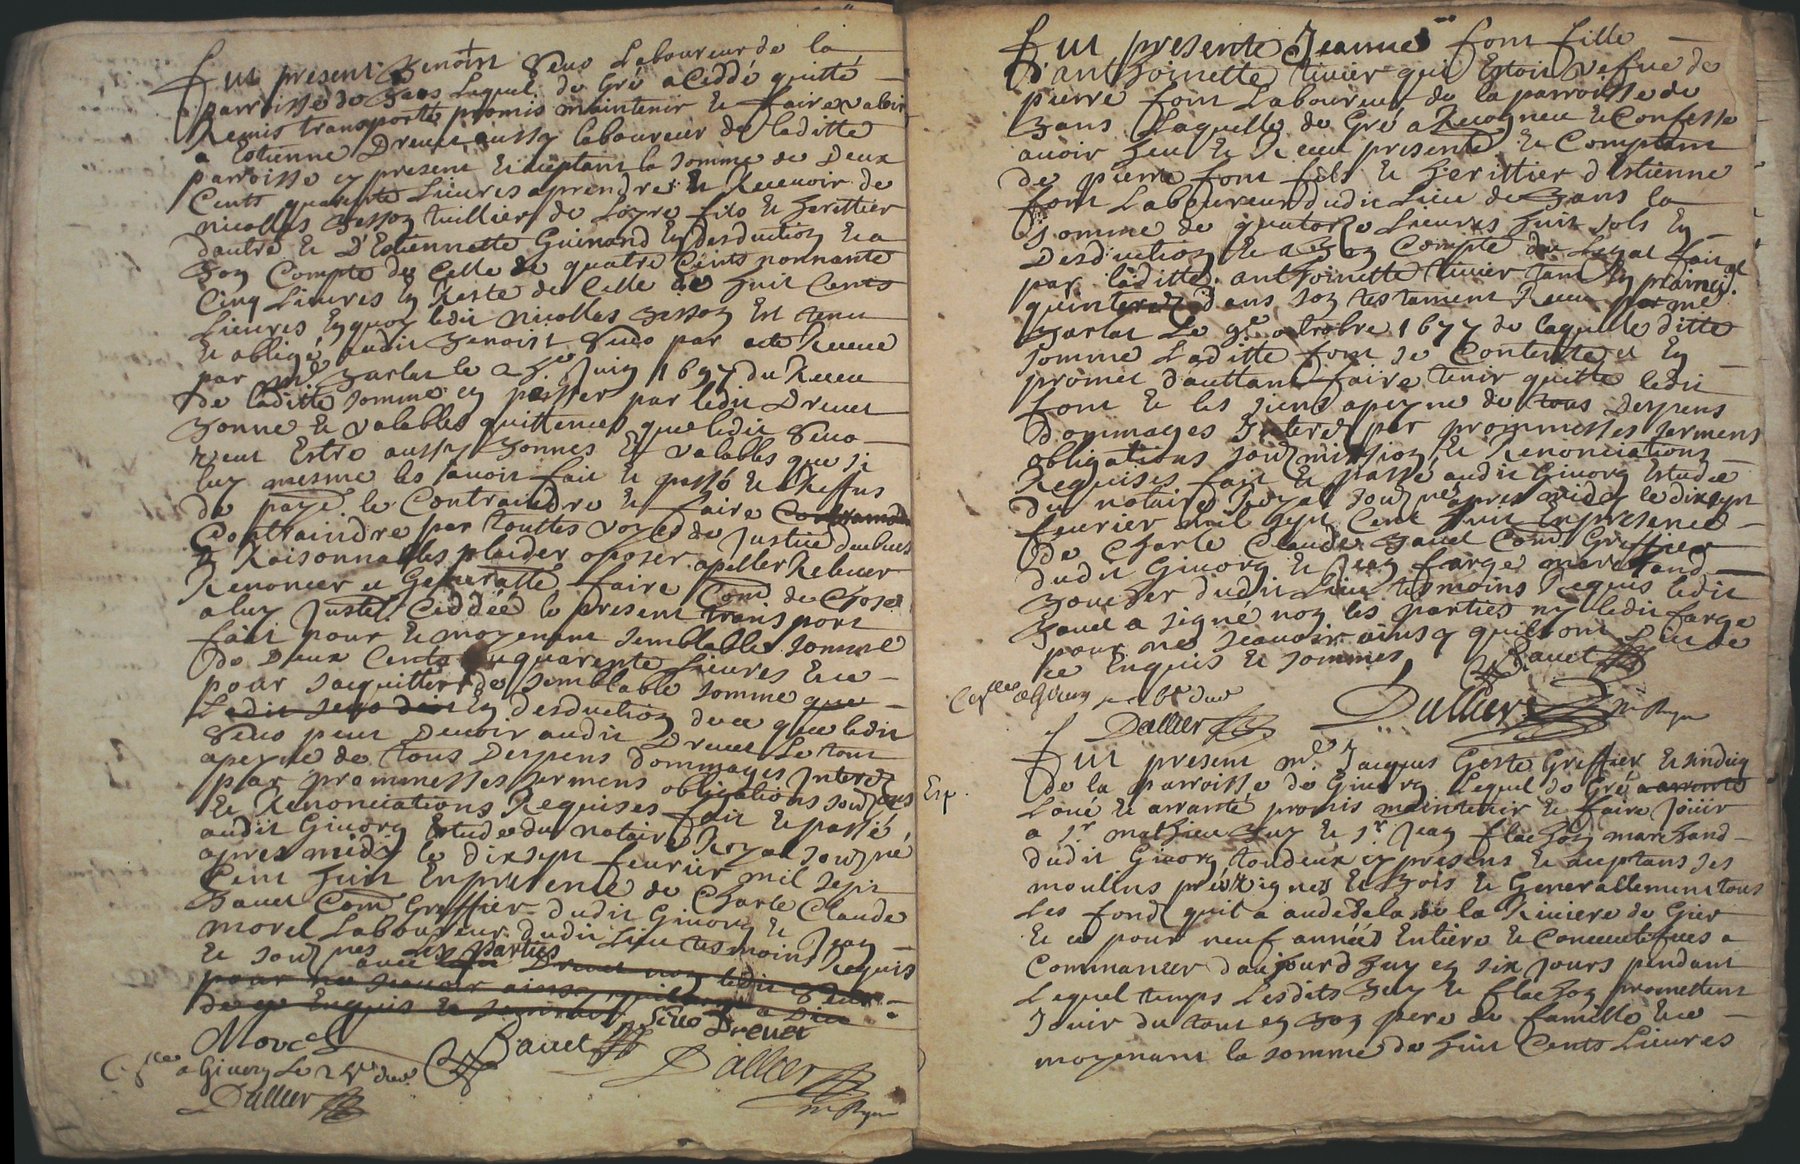 Fut present Benoist Seuo Laboureur de la
parroisse de Bans Lequel de Gré a Ceddé quitté
Remis transporté promis maintenir et faire valoir
a Estienne Dreuet aussy laboureur de laditte
parroisse cy present et aceptant la somme de Deux
Cents quarante Liures aprendre et Receuoir de
nicollas Besson tuillier de Loyre fils et herittier
dautre et D'Estiennette Guinand En desduction et a
Bon Compte de Celle de quatre Cents nonnante
Cinq Liures En Reste de Celle de huit Cents
Liures Enquoy ledit Nicollas Besson Est tenu
et obligé audit Benoist Seuo par acte Receue
par me Barlat le Juin 1697 du Receu
de laditte somme en passer par ledit Dreuet
Bonne et valables quittences que ledit Seuo
veut Estre aussy Bonnes Et valables que si
luy mesme les auoit fait et passé et Reffus
de payé le Contraindre et faire Contraindre
Contraindre par touttes voyes de Justice deubues
et Raisonnables plaider oposer apeller Releuer
Renoncer et Generalle faire Comd de Chose
a luy Juste Ceddéé le present transport
fait pour et moyenant semblable somme
de Deux Cents quarante Liures Et ce
pour sacquitter de semblable somme que
Ledit seuo doit En desduction de ce que ledit
Seuo peut Deuoir audit Dreuet Le tout
apeyne de tous Despens dommages Interez
par prommesses sermens obligations
et Renonciations Requises fait et passé
audit Giuors Estude du Notaire Royal souz.né
apres midy le dixsept feurier mil sept
Cent huit En presence de Charle Claude
Bauet Comd Greffier dudit Giuors et Jean
morel Laboureur dudit Lieu tesmoins Requis
et souz.nes auec Les parties
pour ne scauoir ainsy
de ce Enquis et sommes
Morel Bauet Seuo Dreuet
a Giuors Le
Dallier Dallier
Fut presente Jeanne font fille
D'anthoinette tiuier qui Estoit vefue de
pierre font Laboureur de la parroisse de
Bans Laquelle de Gré a Recogneu et Confesse
auoir heu et Receu presente et Comptant
de pierre font fils et herittier d'Estienne
font Laboureur dudit Lieu de Bans la
somme de quatorze Liures huit sols En
Desduction et a Bon Compte du Legat fait
par laditte anthoinette tiuier tant En principal
quinterez dans son testament Receu par me
Barlat Le 9e octrobre 1677 de laquelle ditte
somme Laditte font se Contente et En
promet dauttant faire tenir quitte ledit
font et les siens apeyne de tous Despens
dommages Interez par prommesses sermens
obligations souzmission Et Renonciations
Requises fait et passé audit Giuors Estude
du notaire Royal souz.né apres midy le dixsept
feurier mil sept Cent huit En presence
de Charle Claude Bauet Comd Greffier
dudit Giuors et Jean farge marchand
Boucher dudit Lieu tesmoins Requis ledit
Bauet a signé non les parties ny ledit farge
pour ne scauoir ainsy quils ont dit de
ce Enquis et sommes
Bauet
a Giuors
Dallier Dallier
Fut present me Jacques Geste Greffier et sindicq
de la parroisse de Giuors Lequel de Gré a arranté
Exp.
Loué et arranté promis maintenir et faire jouir
a sr mathieu Buy et sr Jean flachon marchand
dudit Giuors tou deux cy presens et aceptans ses
moulins préz vignes et Bois et Generallement tous
Les fondz quil a audela de la Riuiere de Gier
Et ce pour neuf annéés Entiere et Consecutifues a
Commancer d'aujourdhuy en six jours pendant
Lequel temps Lesdits Buy et flachon promettent
Jouir du tout en Bon pere de famille Et ce
moyenant la somme de huit Cents Liures